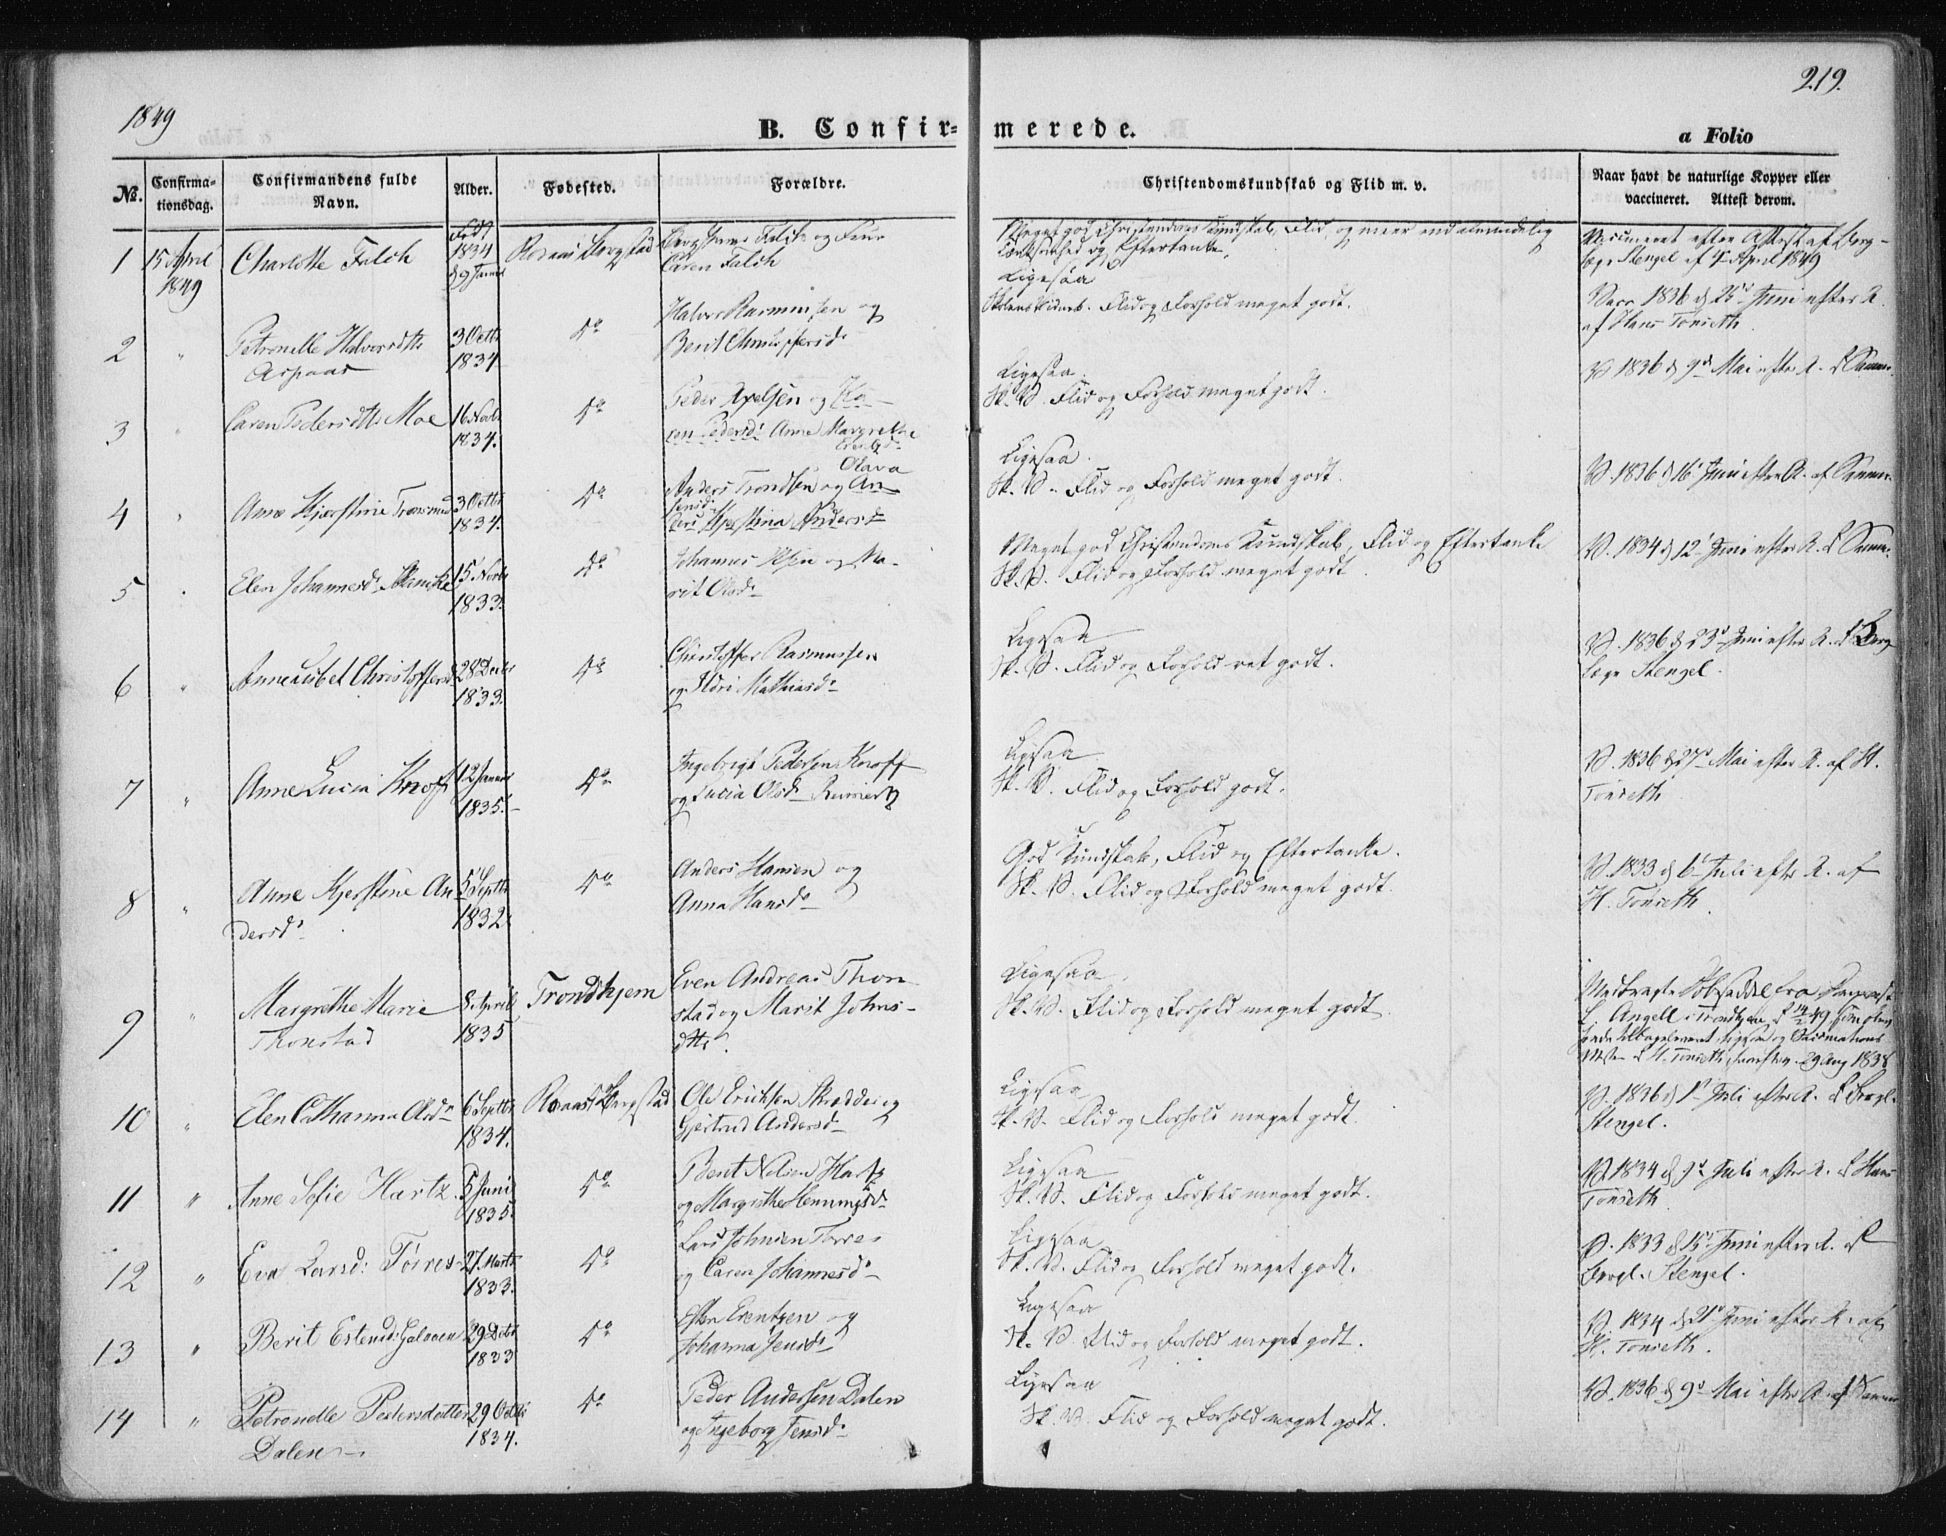 1849
219.
B. Confir-merede.
a Folio
No. Confirma-tionsdag. Confirmandens fulde Navn. Alder. Fødested. Forældre. Christendomskundskab og Flid m. v. Naar havt de naturlige Kopper eller vaccineret. Attest derom.
1 15 April 1849 Charlotte Falch Født 1834 Røraas Bergstad Falch og Frue Caren Falch
Meget god Christendoms Kundskab, Flid og meer end almindelig Eftertanke.
Vaccineret efter Attest af Berglæge Stengel af 4 April 1849
2 " Petronelle Halvorsdtr Aspaas 3 Octbr 1834 do Halvor Rasmussen og Berit Christophersd.
Ligesaa Flid og Forhold meget godt.
Vacc. 1836 d. 25 Juni efter A. af Hans Tønseth
3 " Caren Pedersdtr Moe 16 Novbr 1834. do Peder Axelsen og Karen Pedersd. Anne Margrethe
Ligesaa. Sk. V. Flid og Forhold meget godt.
V. 1836 d. 9d Mai efter A. af Samme.
4 " Anne Kjerstine 3 Octbr 1834. do Anders Trondsen og Olava Kjerstina Andersd
Ligesaa. Sk. V. Flid og Forhold meget godt.
V. 1836 d. 16 Juni efter A. af Samme.
5 " Elen Johannesd. 15 Novbr 1833. do Johannes og Marit Olsd.
Meget god Christendoms Kundskab, Flid og Eftertanke Sk. V. Flid og Forhold meget godt.
V. 1834 d. 12 Juni efter A. af Samme.
6 " Anne Lisbet Christophersd 28 Decbr 1833. do Christopher Rasmussen og Ildri Mathiasd.
Ligesaa Sk. V. Flid og Forhold ret godt.
V. 1836 d. 23d Juni efter A. af Berglæge Stengel.
7 " Anne Lucia Knoff 12 Januar 1835. do Ingebrigt Pedersen Knoff og Lucia Olsd.
Ligesaa Sk. V. Flid og Forhold godt.
V. 1836 d. 27d Mai efter A. af H. Tønseth
8 " Anne Kjerstine Andersd. 5 Septbr 1832. do Anders Hansen og Anna Hansd.
God Kundskab, Flid og Eftertanke. Sk. V. Flid og Forhold meget godt.
V. 1833 d. 6 Juli efter A. af H. Tønseth.
9 " Margrethe Marie Thonstad 8 April 1835 Trondhjem Even Andreas Thonstad og Marit Johnsdtr.
Ligesaa. Sk. V. Flid og Forhold meget godt.
Medbragte Døbseddel fra Angell i Trondhjem af H. Tønseth 29 Aug 1838
10 " Elen Cathrina Olsd. 6 Septbr 1834. Røraas Bergstad Ole Eriksen Skrædder og Gjertrud Andersd.
Ligesaa Sk. V. Flid og Forhold meget godt.
V. 1836 d. 1 Juli efter A. af Bergl. Stengel.
11 " Anne Sofie Hartz 5 Juni 1835. do Bent Nilsen Hartz og Margrethe Henningsd.
Ligesaa Sk. V. Flid og Forhold meget godt.
V. 1834 d. 9d Juli efter A. af Hans Tønseth
12 " Eva Larsd: Tørres 27 Marts 1833. do Lars Johnsen Tørres og Caren Johannesd.
Ligesaa Sk. V. Flid og Forhold meget godt.
V. 1833 d. 15 Juni efter A. af Bergl. Stengel.
13 " Berit Estensd: Galaaen 29 Decbr 1833 do Esten Erentzen og Johanna Jensd.
Ligesaa Sk. V. Flid og Forhold meget godt.
V. 1834 d. 21 Juni efter A. af H. Tønseth.
14 " Petronelle Pedersdatter Dalen 29 Octbr 1834. do Peder Andersen Dalen og Ingeborg Jensd.
Ligesaa Sk. V. Flid og Forhold meget godt.
V. 1836 d. 9d Mai efter A. af Samme